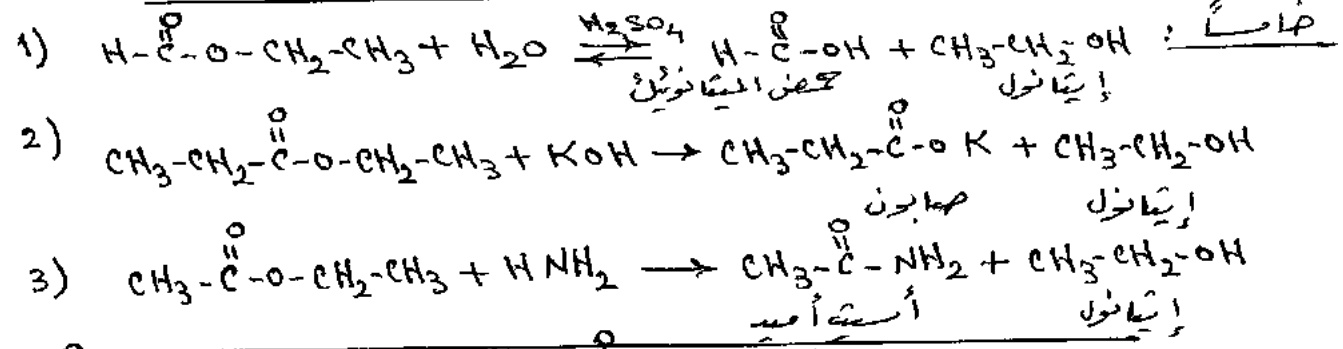 خامساً :
1) H-C(=O)-O-CH₂-CH₃ + H₂O ⇌ (H₂SO₄) H-C(=O)-OH + CH₃-CH₂-OH
حمض الميتانوئيك إيتانول
2) CH₃-CH₂-C(=O)-O-CH₂-CH₃ + KOH → CH₃-CH₂-C(=O)-O K + CH₃-CH₂-OH
صابون إيتانول
3) CH₃-C(=O)-O-CH₂-CH₃ + H NH₂ → CH₃-C(=O)-NH₂ + CH₃-CH₂-OH
أسيت أميد إيتانول